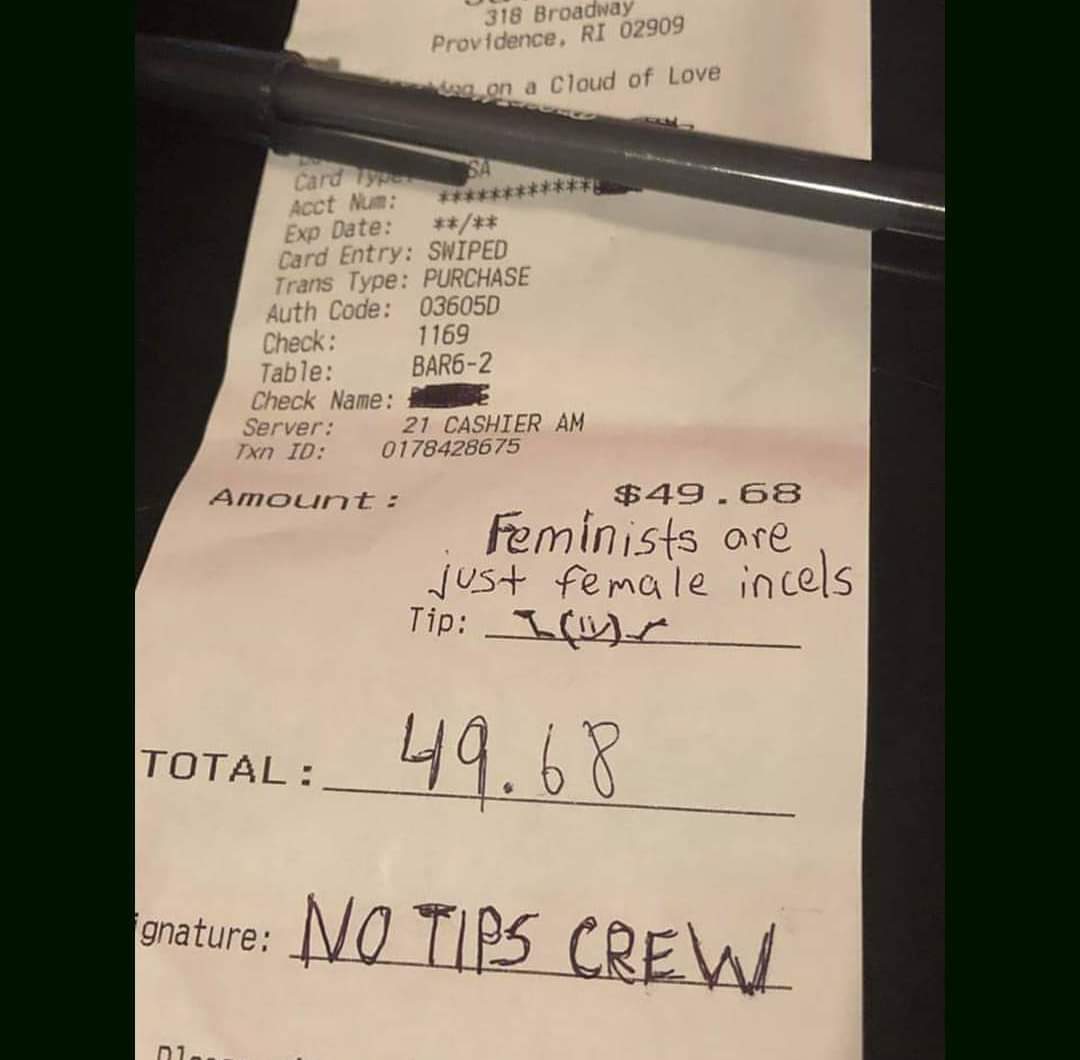 318 Broadway
Providence, RI 02909
on a Cloud of Love
Card Type: SA
Acct Num: ************
Exp Date: **/**
Card Entry: SWIPED
Trans Type: PURCHASE
Auth Code: 03605D
Check: 1169
Table: BAR6-2
Check Name:
Server: 21 CASHIER AM
Txn ID: 0178428675
Amount: $49.68
Feminists are
just female incels
Tip:
TOTAL: 49.68
ignature: NO TIPS CREW